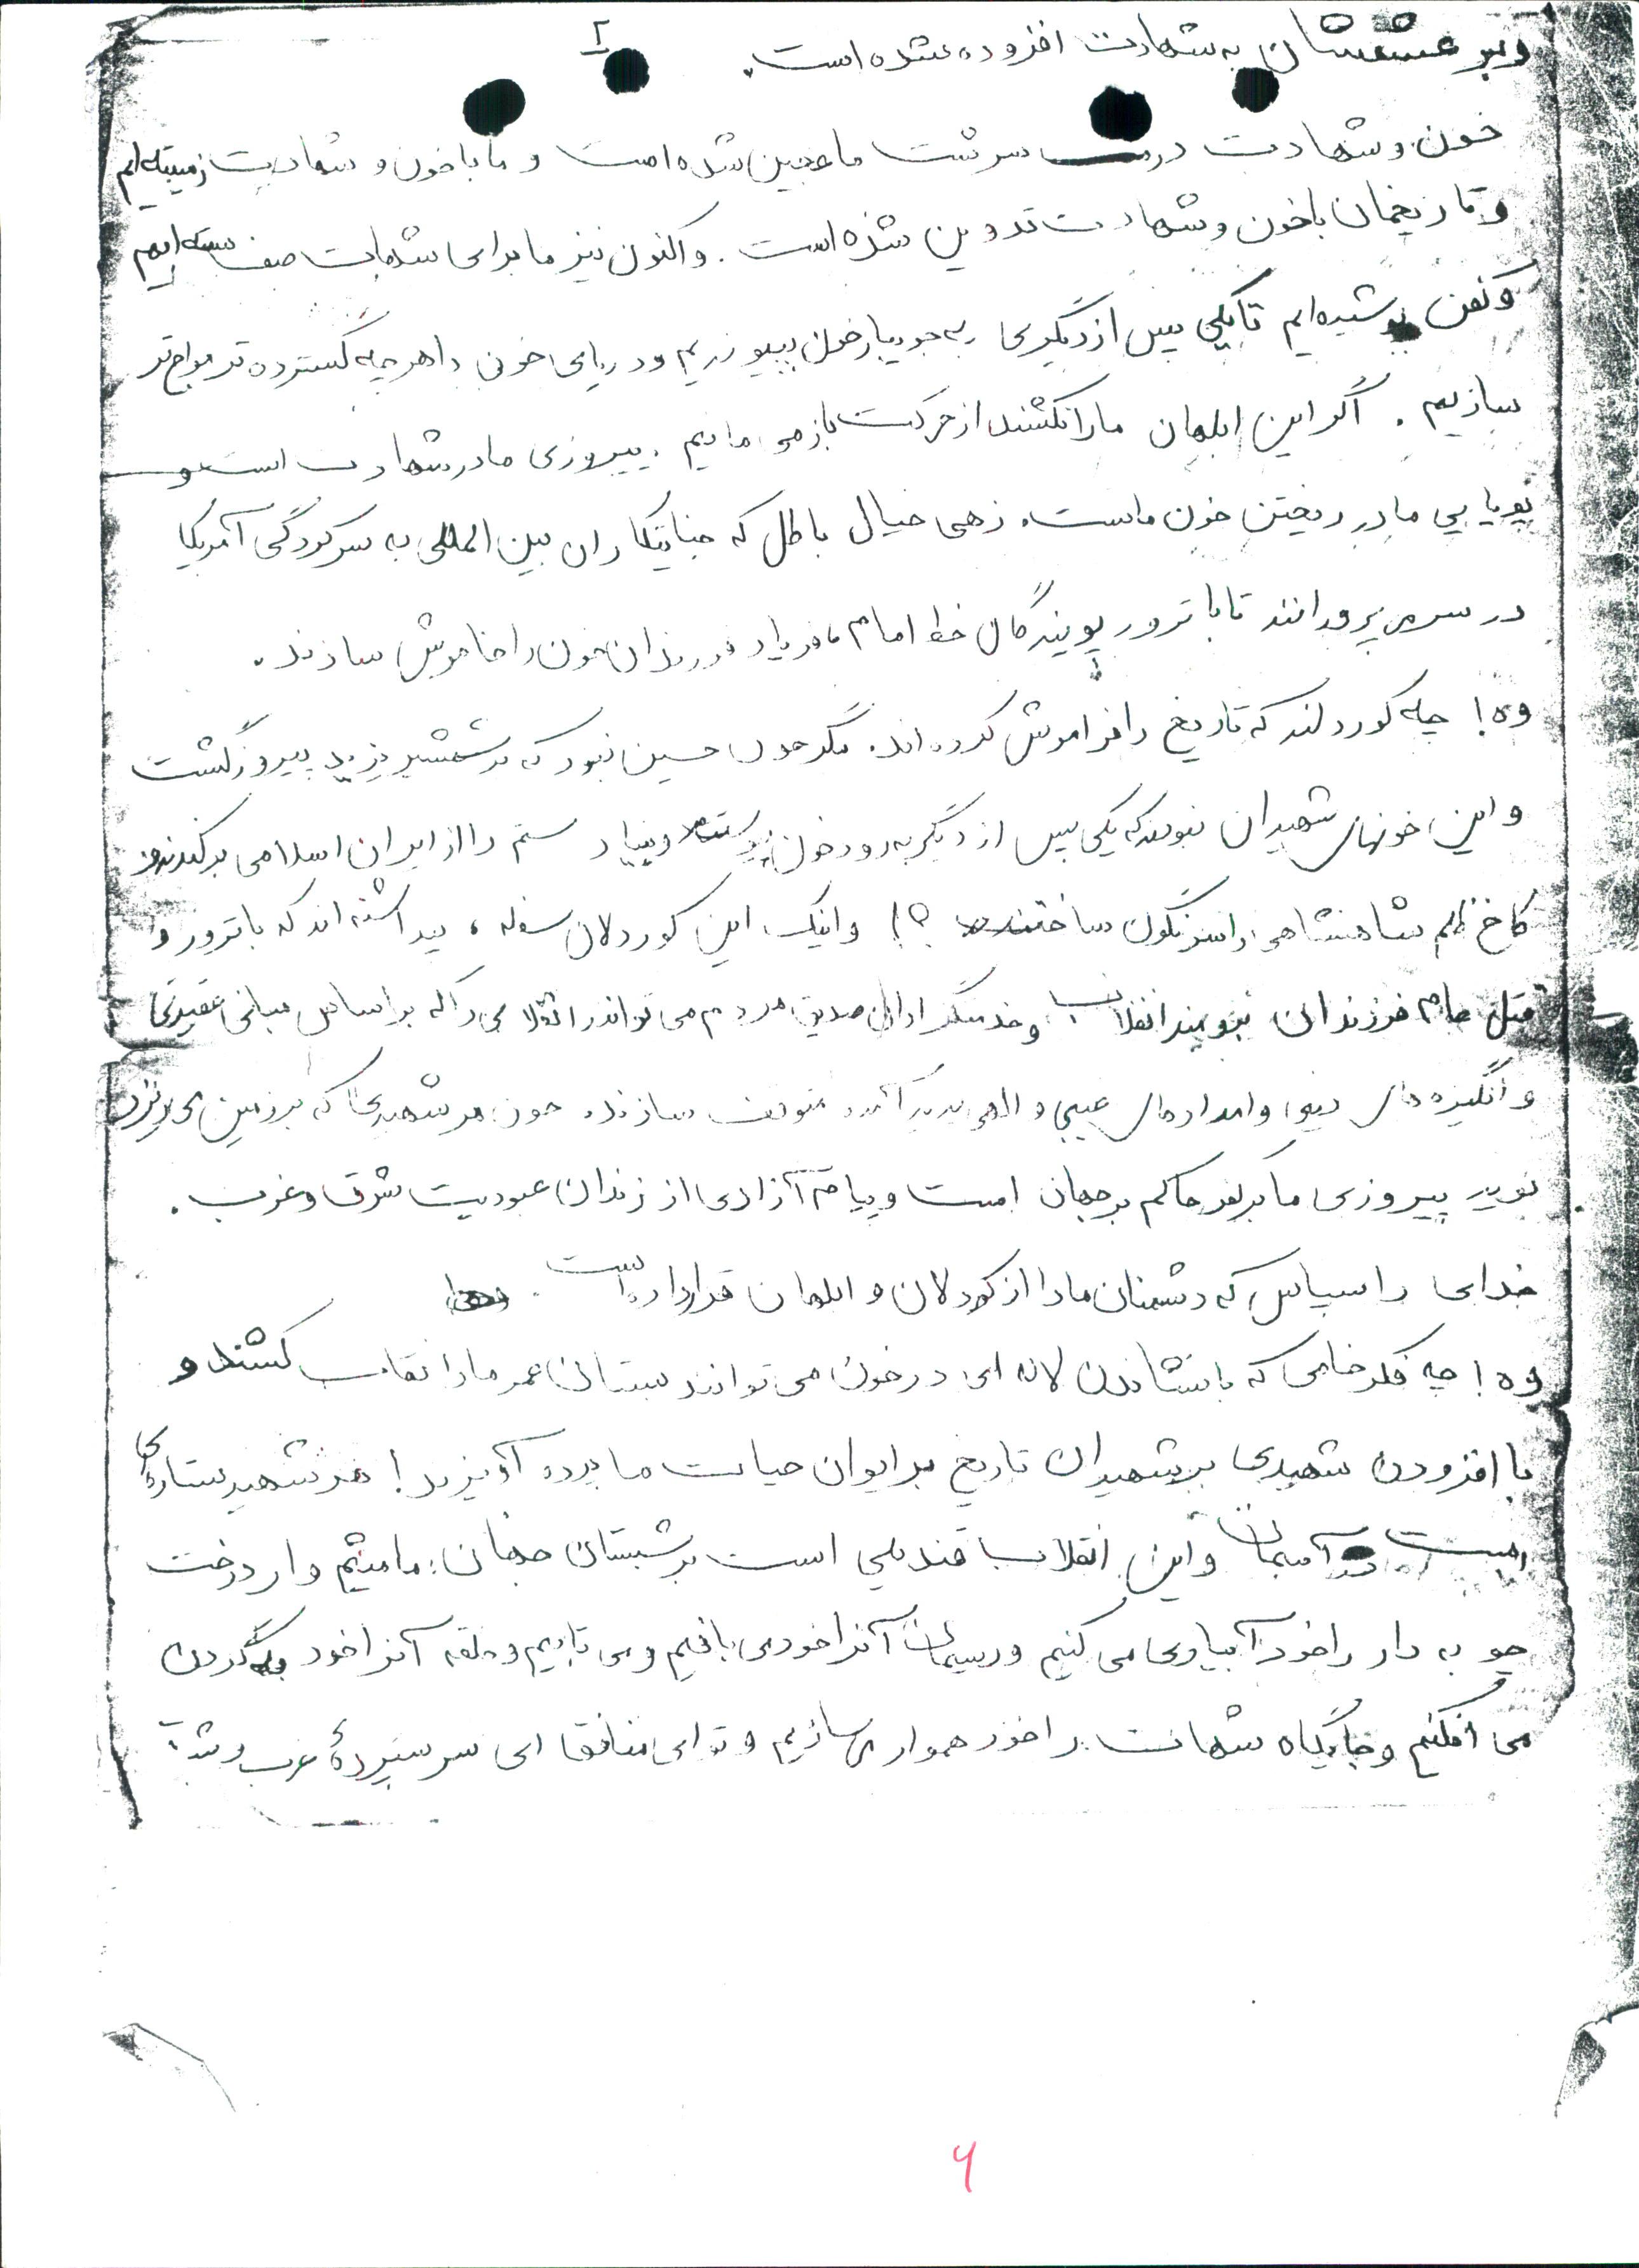 ۲
و بر عشقشان به شهادت افزوده شده است.
خون و شهادت در سرشت ما عجین شده است و ما با خون و شهادت زیسته‌ایم
و تاریخمان با خون و شهادت تدوین شده است. و اکنون نیز ما برای شهادت صف بسته‌ایم
و کفن پوشیده‌ایم تا یکی پس از دیگری به جویبار خون بپیوندیم و دریای خون را هر چه گسترده‌تر مواج‌تر
سازیم. اگر این ابلهان ما را نکشند از حرکت باز می‌مانیم. پیروزی ما در شهادت است و
پویایی ما در ریختن خون ماست. زهی خیال باطل که جنایتکاران بین المللی به سرکردگی آمریکا
در سر می‌پرورانند تا با ترور پویندگان خط امام فریاد فرزندان خون را خاموش سازند.
وه! چه کوردلند که تاریخ را فراموش کرده‌اند. مگر خون حسین نبود که بر شمشیر یزید پیروز گشت
و این خونهای شهیدان نبودند که یکی پس از دیگر به رود خون پیوستند و بنیاد ستم را از ایران اسلامی برکندند و
کاخ ظلم شاهنشاهی را سرنگون ساختند ؟! و اینک این کوردلان سفله، پنداشته‌اند که با ترور و
قتل عام فرزندان برومند انقلاب و خدمتگزاران صدیق مردم می‌توانند انقلابی را که بر اساس مبانی عقیدتی
و انگیزه‌های دینی و امدادهای غیبی و الهی پدید آمده متوقف سازند. خون هر شهیدی که بر زمین می‌ریزد
نوید پیروزی ما بر کفر حاکم بر جهان است و پیام آزادی از زندان عبودیت شرق و غرب.
خدای را سپاس که دشمنان ما را از کوردلان و ابلهان قرار داده است.
وه! چه فکر خامی که با نشاندن لاله‌ای در خون می‌توانند بستان عمر ما را نقاب کشند و
با افزودن شهیدی بر شهیدان تاریخ بر ایوان حیات ما پرده آویزند! هر شهید ستاره‌ای
است در آسمان و این انقلاب قندیلی است بر شبستان جهان. ما میثم وار درخت
چوبه دار را خود آبیاری می‌کنیم و ریسمان آنرا خود می‌بافیم و می‌تابیم و حلقه آنرا خود به گردن
می‌افکنیم و جایگاه شهادت را خود هموار می‌سازیم و تو ای منافق ای سرسپردهٔ غرب و شرق
۶